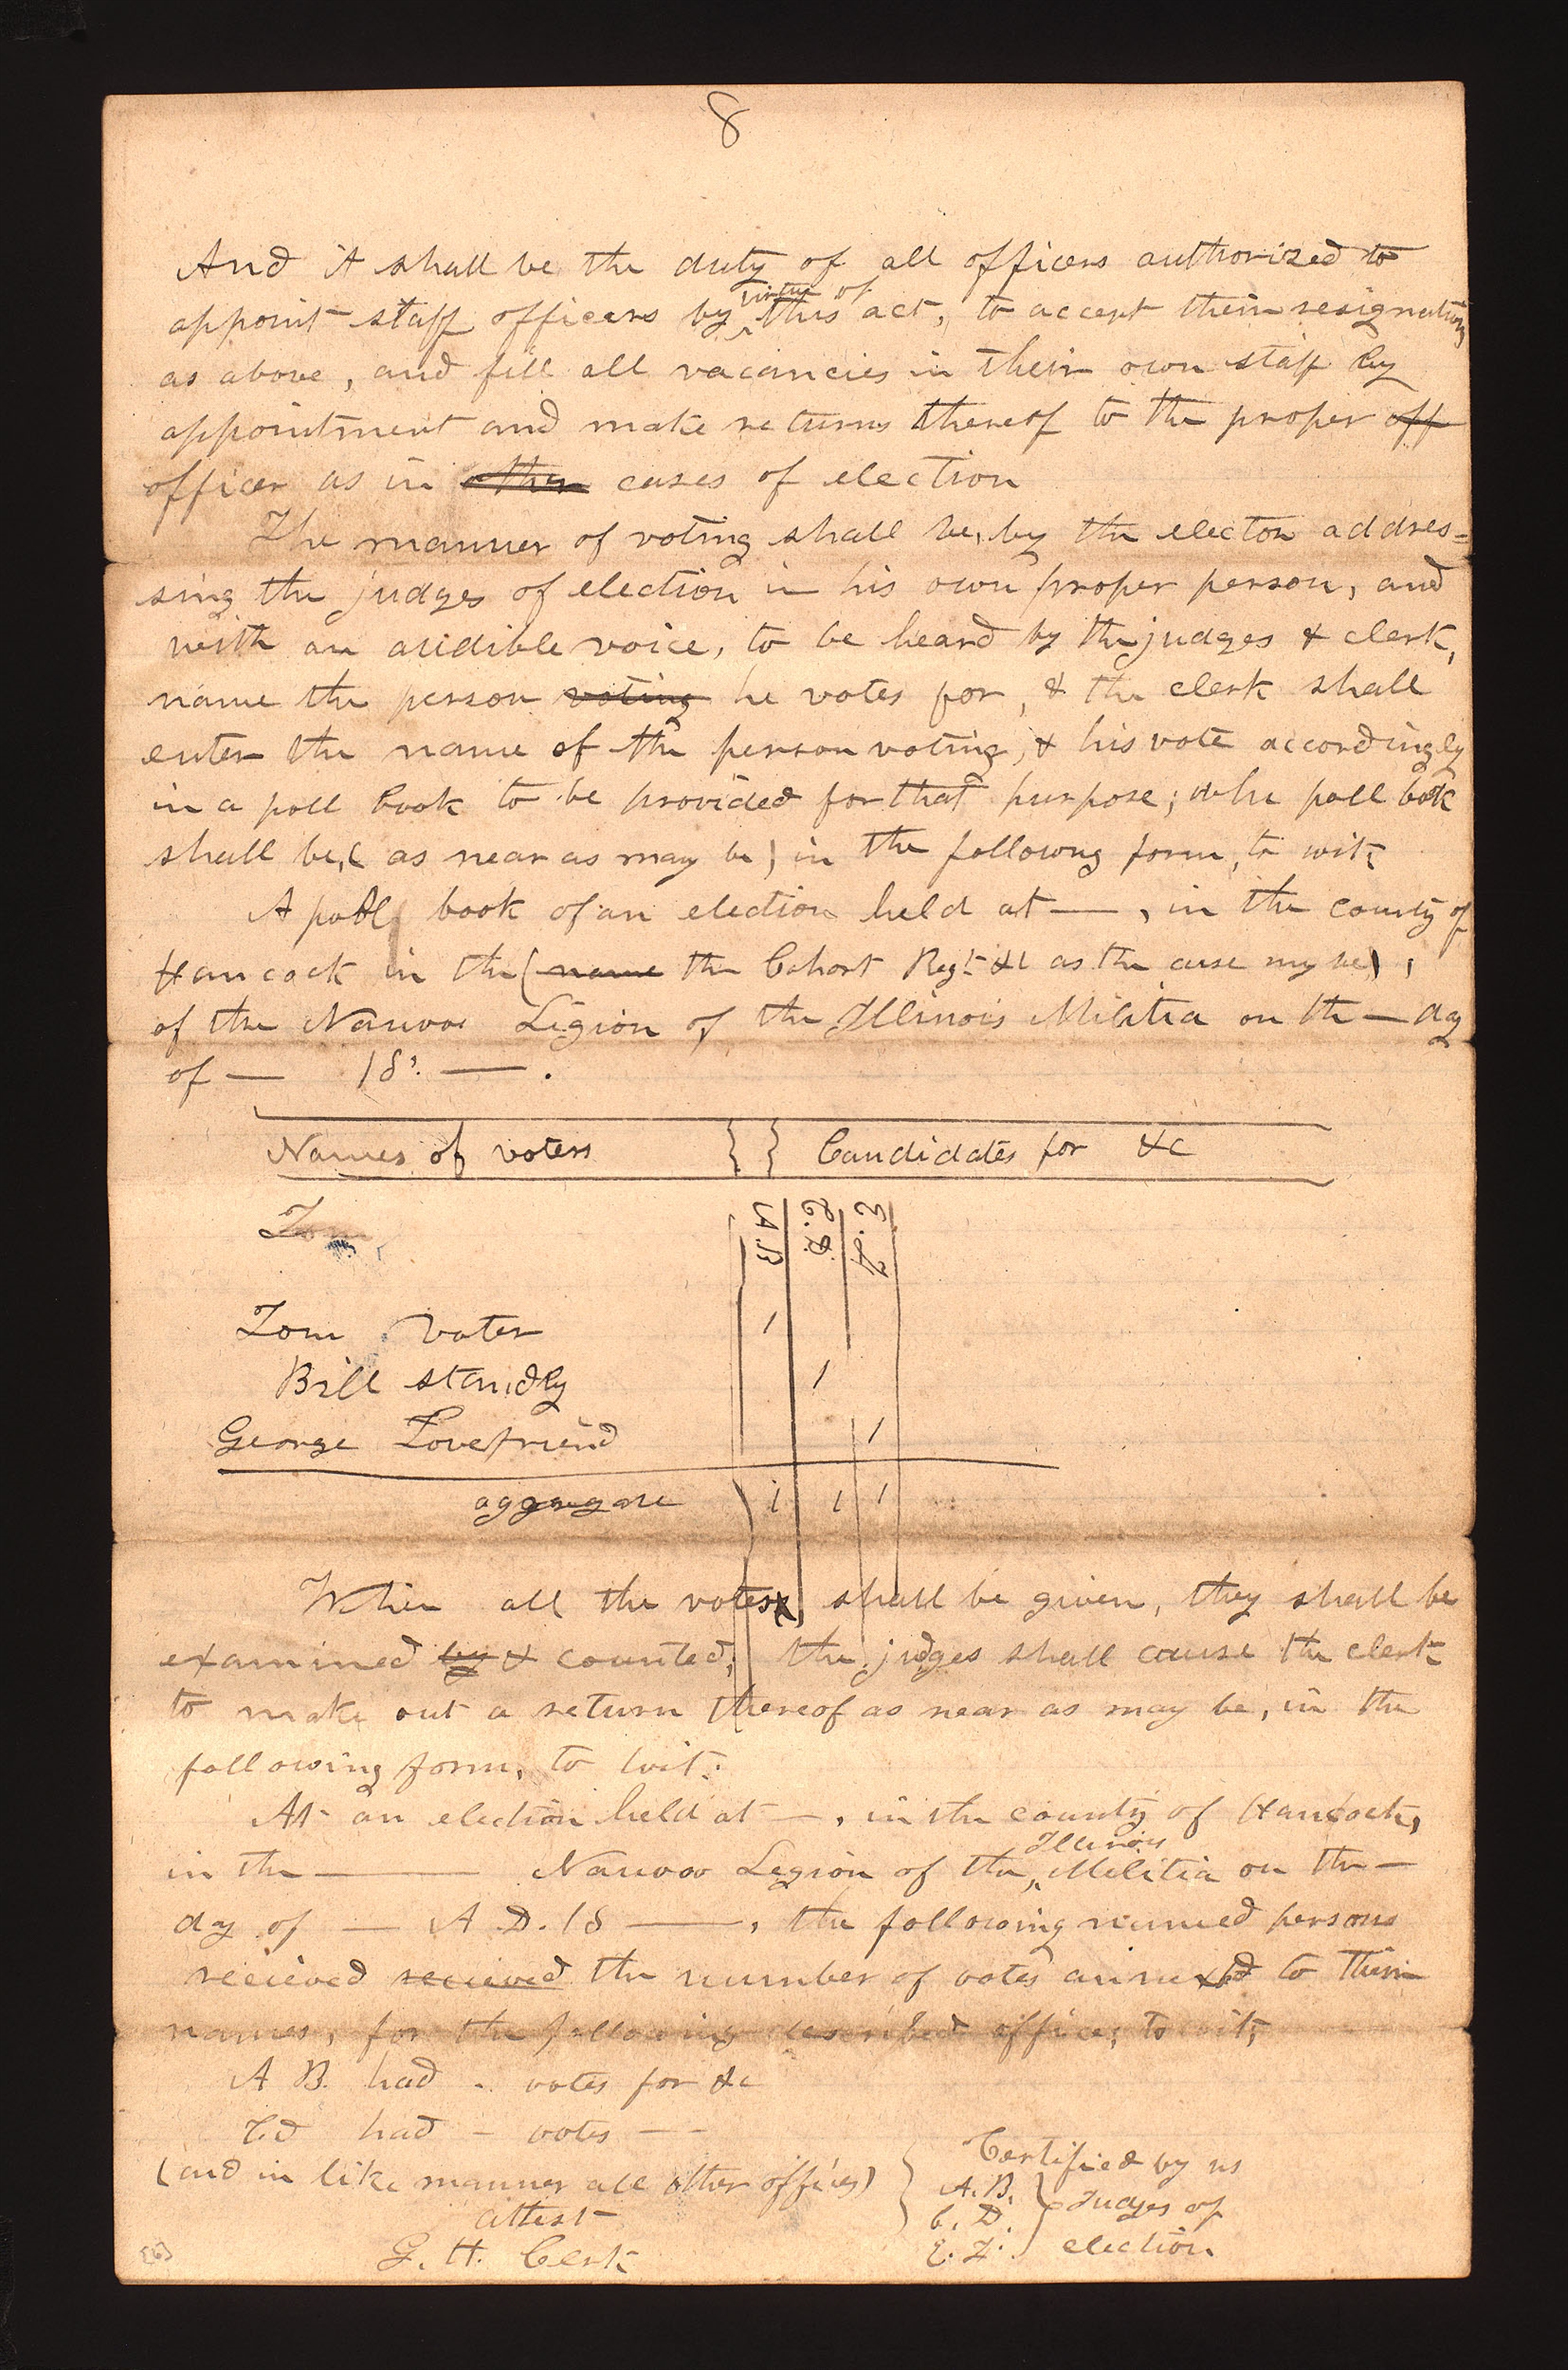 8
And it shall be the duty of all officers authorized to
appoint staff officers by virtue of this act, to accept their resignations
as above, and fill all vacancies in their own staff by
appointment and make returns thereof to the proper off
officer as in other cases of election
The manner of voting shall be, by the elector addres=
sing the judges of election in his own proper person, and
with an audible voice, to be heard by the judges & clerk,
name the person voting he votes for, & the clerk shall
enter the name of the person voting, & his vote accordingly
in a poll book to be provided for that purpose; whc poll book
shall be, (as near as may be) in the followng form, to wit;
A poll book of an election held at — , in the county of
Hancock in the (name the Cohort Regt &c as the case my be) ,
of the Nauvoo Legion of the Illinois Militia on the — day
of — 18. — .
Names of voters } } Candidates for &c
A.B C.D. E.F
Tom
Tom Voter 1
Bill standby 1
George Lovefriend 1
aggregate 1 1 1
When all the votes shall be given, they shall be
examined by & counted; the judges shall cause the clerk
to make out a return thereof as near as may be, in the
following form, to wit:
At an election held at — , in the county of Hancock,
in the — Nauvoo Legion of the Illinois Militia on the —
day of — A.D. 18 — , the following named persons
recieved recieved the number of votes annexed to their
names, for the following described offices, to wit;
A B. had — votes for &c
C.d had — votes — -
(and in like manner all other offices)
attest
G. H. Clerk
} Certified by us
A.B.
C. D. } Judges of
E. F. election
[6]